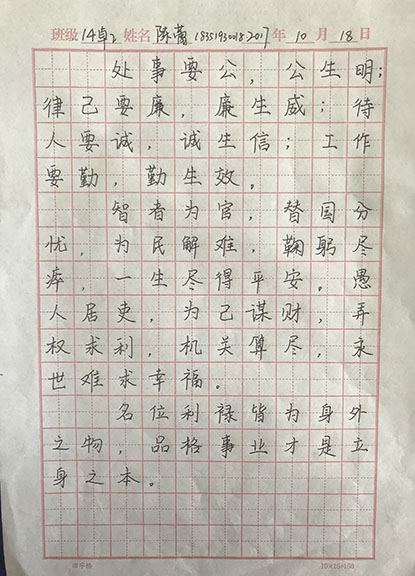 班级 14卓2 姓名 陈蕾 18351930018 2017年 10月 18日
处事要公，公生明；
律己要廉，廉生威；待
人要诚，诚生信；工作
要勤，勤生效。
智者为官，替国分
忧，为民解难，鞠躬尽
瘁，一生尽得平安。愚
人居吏，为己谋财，弄
权求利，机关算尽，永
世难求幸福。
名位利禄皆为身外
之物，品格事业才是立
身之本。